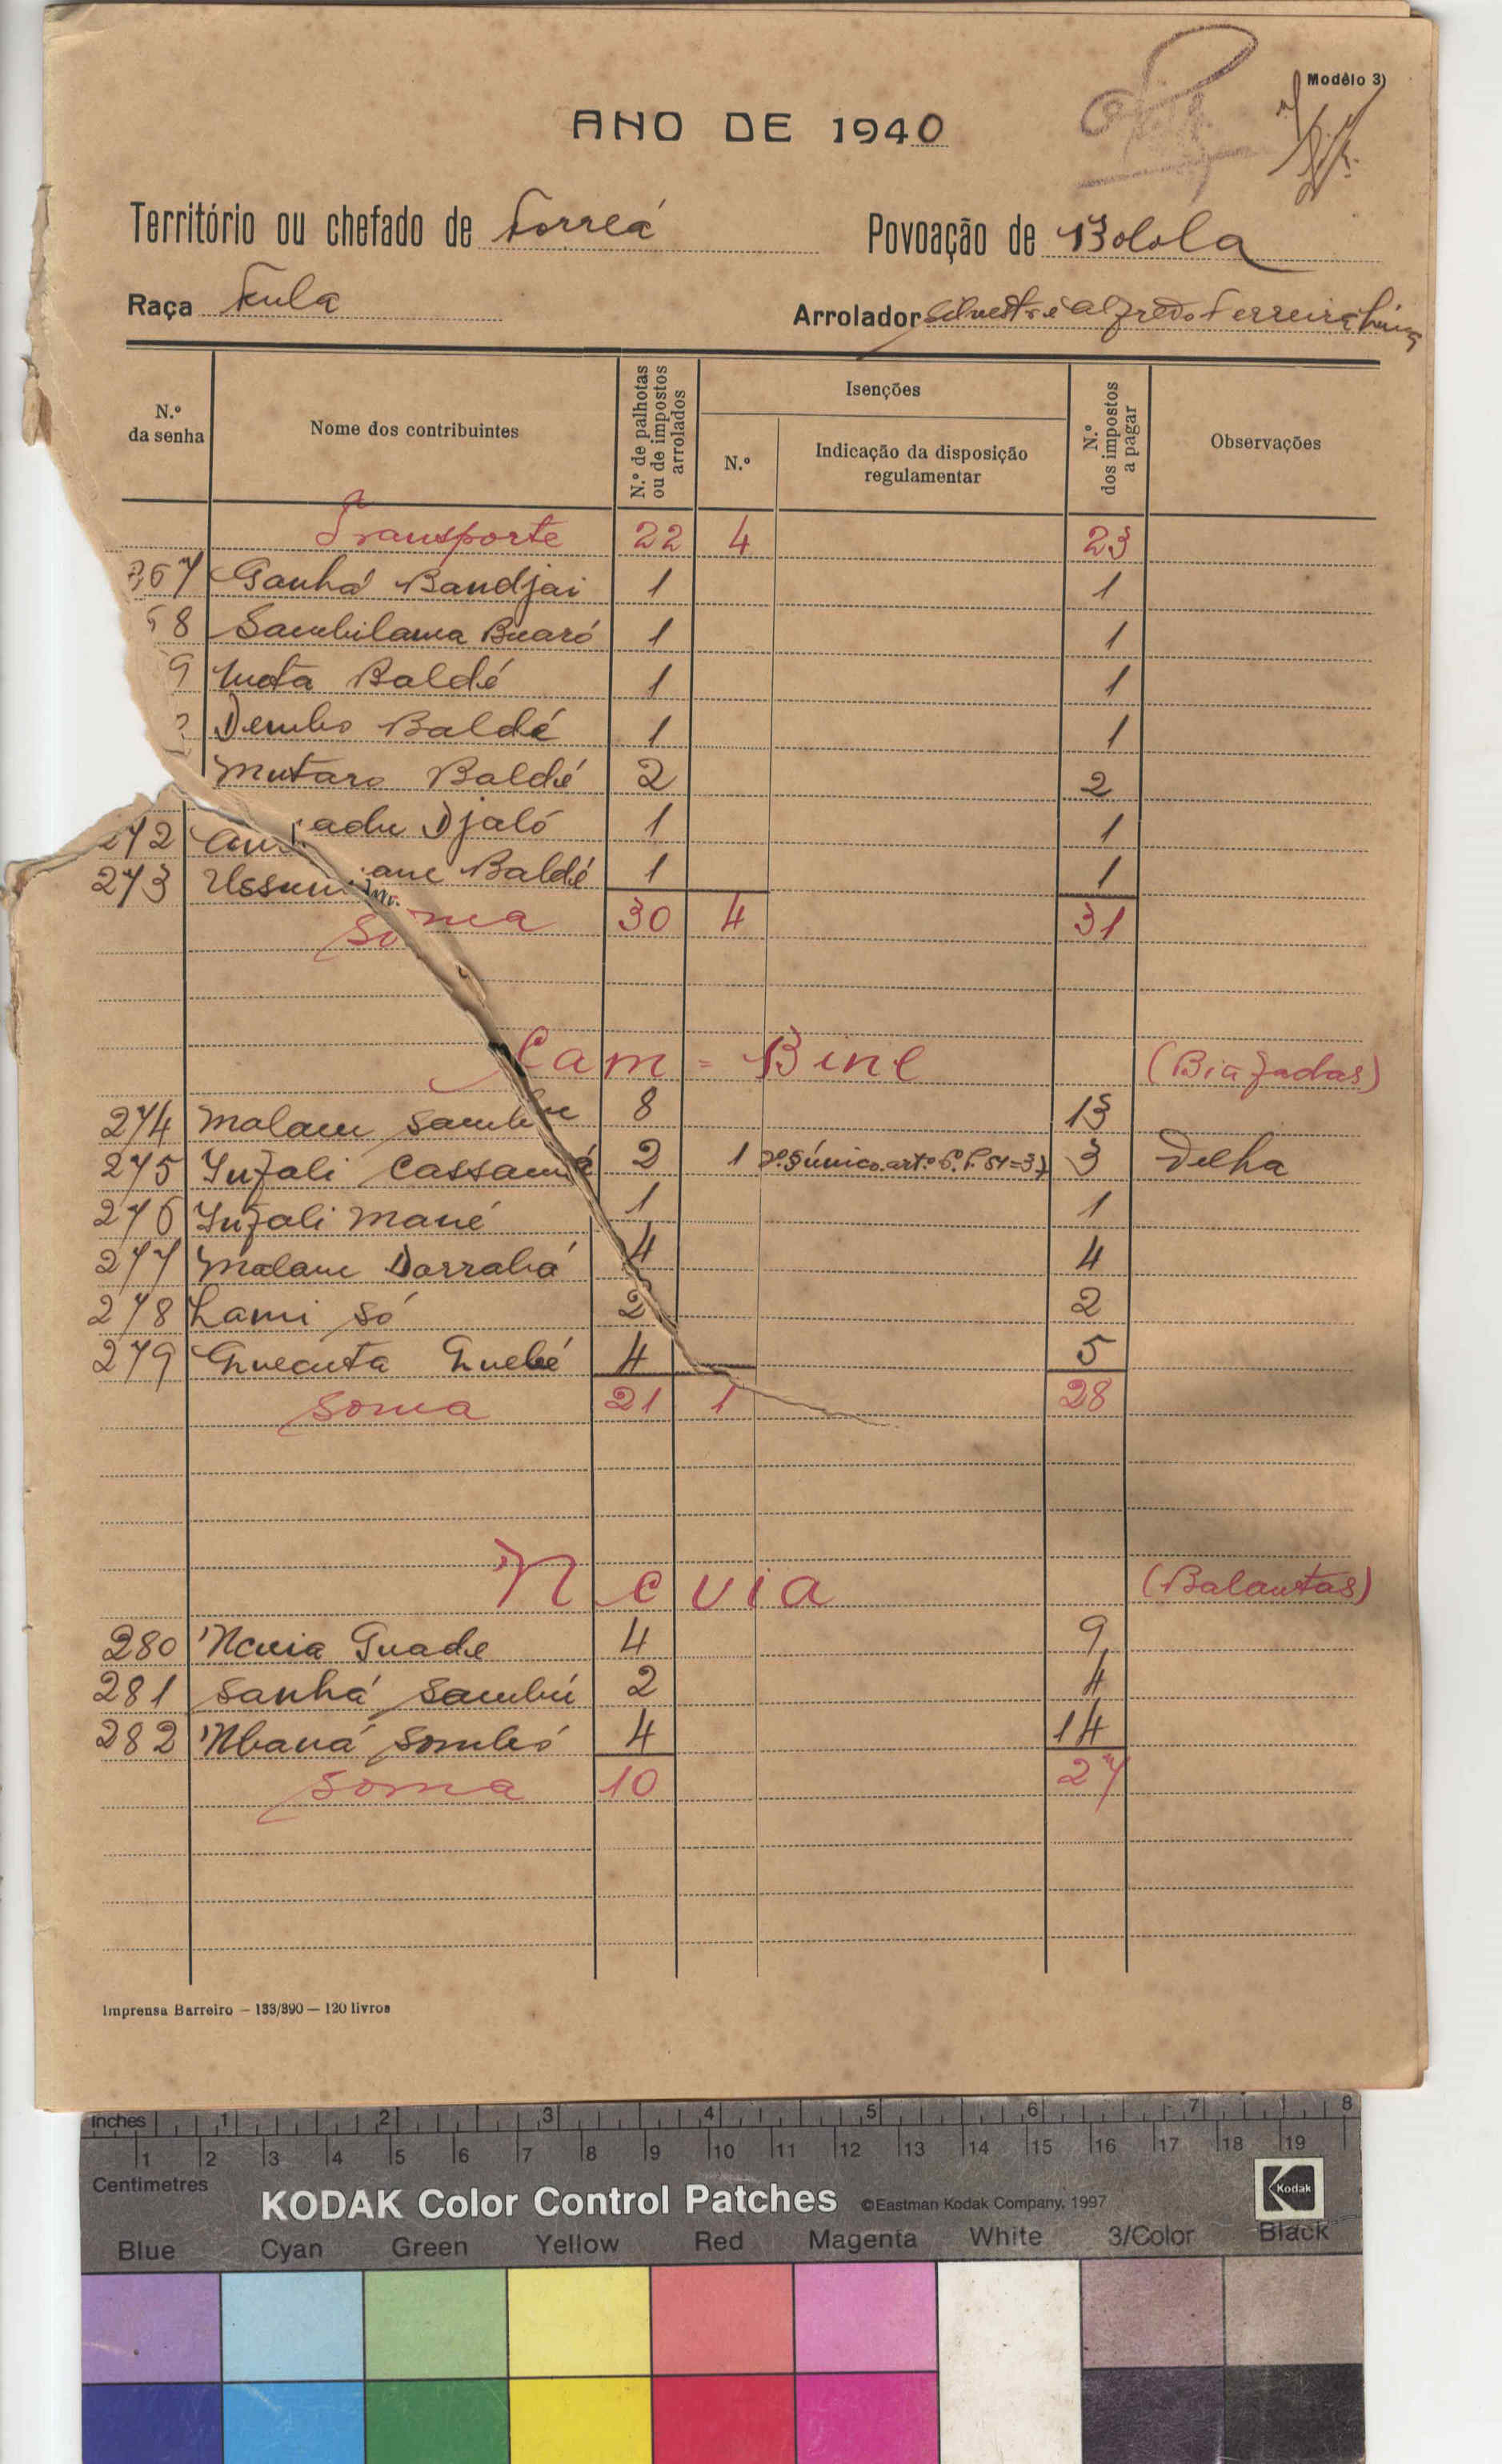 Modêlo 3)
ANO DE 1940
Território ou chefado de Forreá Povoação de Bolola
Raça Fula Arrolador Silvestre Alfredo Ferreira Lima
N.º da senha
Nome dos contribuintes
N.º de palhotas ou de impostos arrolados
Isenções
N.º
Indicação da disposição regulamentar
N.º dos impostos a pagar
Observações
Transporte 22 4 23
267 Ganhá Bandjai 1 1
68 Sambilama Buaró 1 1
9 Mota Baldé 1 1
Dembo Baldé 1 1
Mutaro Baldé 2 2
272 adu Djaló 1 1
273 Ussumane Baldé 1 1
Soma 30 4 31
Cam = Bine (Biafadas)
274 Malam Sambu 8 13
275 Infali Cassamá 2 1 único artº 3 Velha
276 Infali Mané 1 1
277 Malam Darrabá 4 4
278 Lami Só 2 2
279 Quecuta Quebé 4 5
Soma 21 1 28
Ncuia (Balantas)
280 Ncuia Guade 4 9
281 Sanhá Sambú 2 4
282 Nbaná Sombó 4 14
Soma 10 27
Imprensa Barreiro — 133/390 — 120 livros
inches 1 2 3 4 5 6 7 8
1 2 3 4 5 6 7 8 9 10 11 12 13 14 15 16 17 18 19
Centimetres
KODAK Color Control Patches ©Eastman Kodak Company, 1997 Kodak
Blue Cyan Green Yellow Red Magenta White 3/Color Black